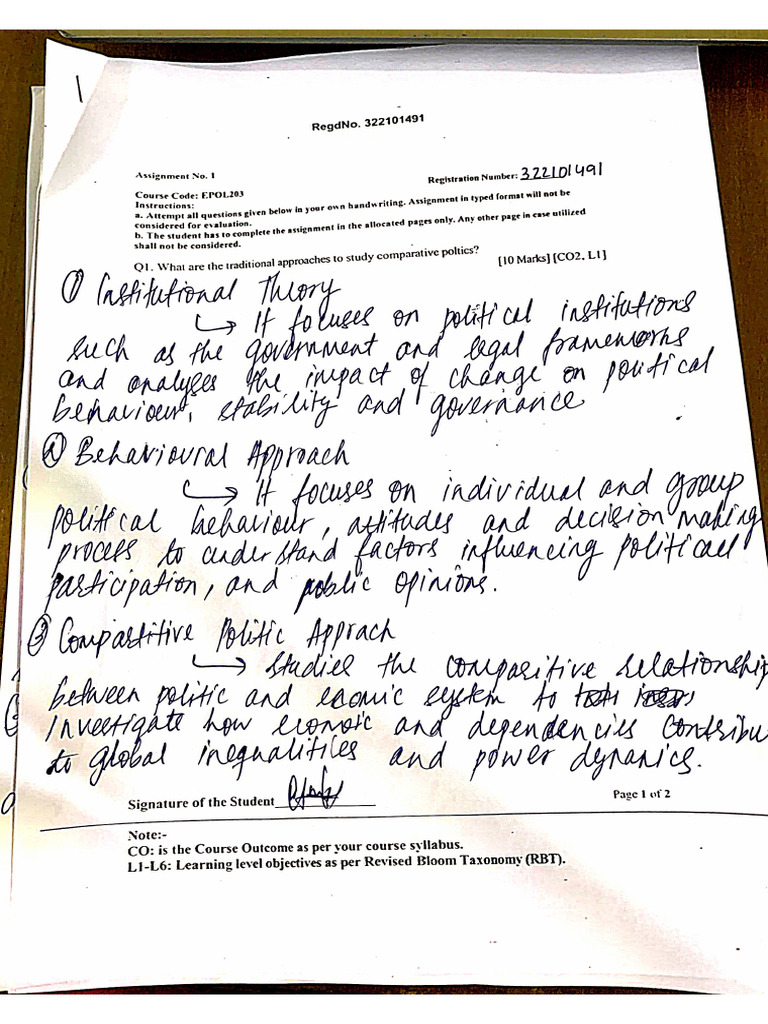 1
RegdNo. 322101491
Assignment No. 1
Registration Number: 322101491
Course Code: EPOL203
Instructions:
a. Attempt all questions given below in your own handwriting. Assignment in typed format will not be
considered for evaluation.
b. The student has to complete the assignment in the allocated pages only. Any other page in case utilized
shall not be considered.
Q1. What are the traditional approaches to study comparative poltics?
[10 Marks] [CO2, L1]
① Institutional Theory
↳ It focuses on political institutions
such as the government and legal frameworks
and analyses the impact of change on political
behaviour, stability and governance
② Behavioural Approach
↳ It focuses on individual and group
political behaviour, attitudes and decision making
process to understand factors influencing political
participation, and public opinions.
③ Comparitive Politic Apprach
↳ studies the comparitive relationship
between politic and economic system to
investigate how economic and dependencies contribu
to global inequalities and power dynamics.
Signature of the Student
Page 1 of 2
Note:-
CO: is the Course Outcome as per your course syllabus.
L1-L6: Learning level objectives as per Revised Bloom Taxonomy (RBT).